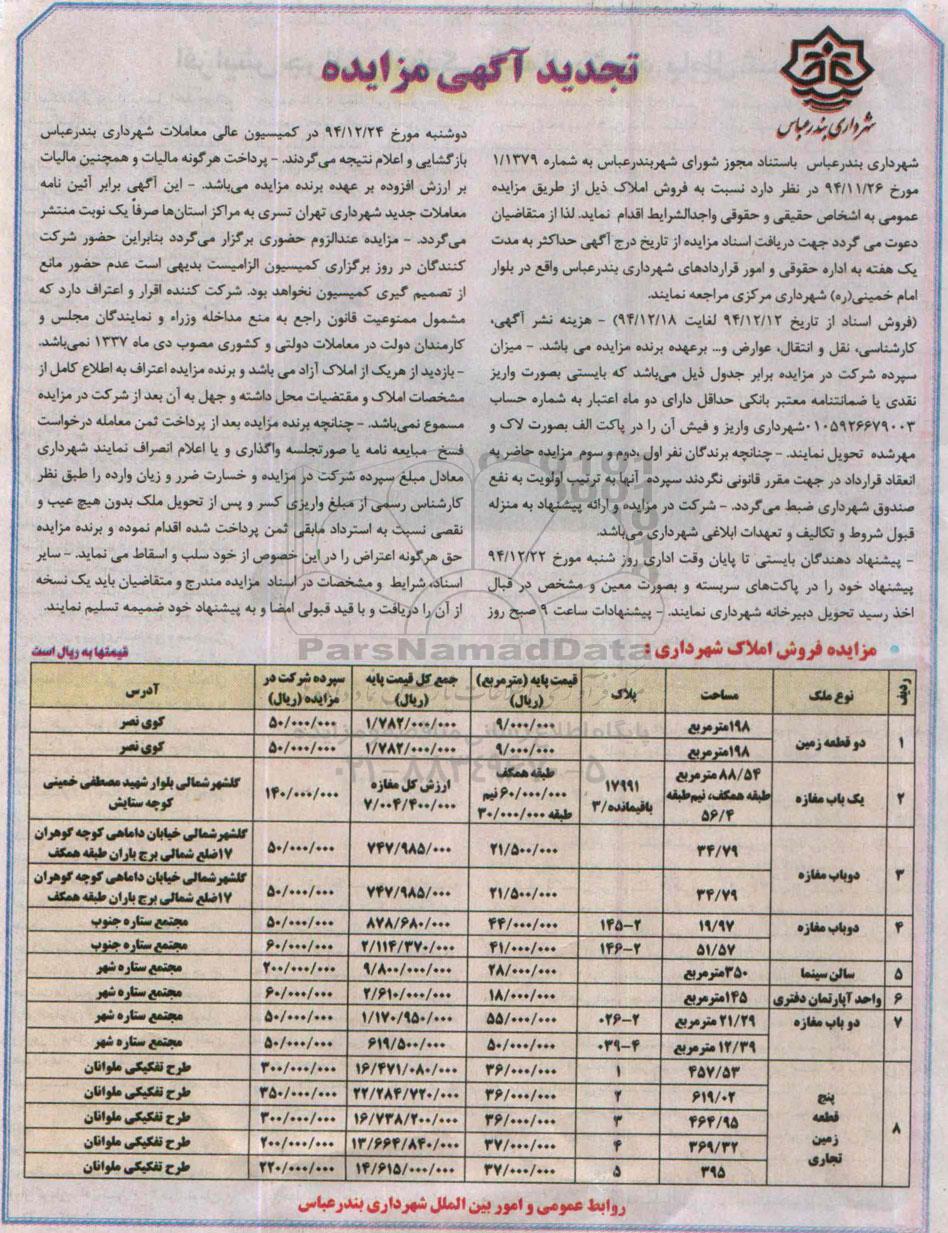 تجدید آگهی مزایده
شهرداری بندرعباس
شهرداری بندرعباس باستناد مجوز شورای شهربندرعباس به شماره ۱/۱۳۷۹
مورخ ۹۴/۱۱/۲۶ در نظر دارد نسبت به فروش املاک ذیل از طریق مزایده
عمومی به اشخاص حقیقی و حقوقی واجدالشرایط اقدام نماید. لذا از متقاضیان
دعوت می گردد جهت دریافت اسناد مزایده از تاریخ درج آگهی حداکثر به مدت
یک هفته به اداره حقوقی و امور قراردادهای شهرداری بندرعباس واقع در بلوار
امام خمینی(ره) شهرداری مرکزی مراجعه نمایند.
(فروش اسناد از تاریخ ۹۴/۱۲/۱۲ لغایت ۹۴/۱۲/۱۸) - هزینه نشر آگهی،
کارشناسی، نقل و انتقال، عوارض و... برعهده برنده مزایده می باشد. - میزان
سپرده شرکت در مزایده برابر جدول ذیل می‌باشد که بایستی بصورت واریز
نقدی یا ضمانتنامه معتبر بانکی حداقل دارای دو ماه اعتبار به شماره حساب
۰۱۰۵۹۲۶۶۷۹۰۰۳شهرداری واریز و فیش آن را در پاکت الف بصورت لاک و
مهرشده تحویل نمایند. - چنانچه برندگان نفر اول ،دوم و سوم مزایده حاضر به
انعقاد قرارداد در جهت مقرر قانونی نگردند سپرده آنها به ترتیب اولویت به نفع
صندوق شهرداری ضبط می‌گردد. - شرکت در مزایده و ارائه پیشنهاد به منزله
قبول شروط و تکالیف و تعهدات ابلاغی شهرداری می‌باشد.
- پیشنهاد دهندگان بایستی تا پایان وقت اداری روز شنبه مورخ ۹۴/۱۲/۲۲
پیشنهاد خود را در پاکت‌های سربسته و بصورت معین و مشخص در قبال
اخذ رسید تحویل دبیرخانه شهرداری نمایند. - پیشنهادات ساعت ۹ صبح روز
دوشنبه مورخ ۹۴/۱۲/۲۴ در کمیسیون عالی معاملات شهرداری بندرعباس
بازگشایی و اعلام نتیجه می‌گردند. - پرداخت هرگونه مالیات و همچنین مالیات
بر ارزش افزوده بر عهده برنده مزایده می‌باشد. - این آگهی برابر آئین نامه
معاملات جدید شهرداری تهران تسری به مراکز استان‌ها صرفاً یک نوبت منتشر
می‌گردد. - مزایده عندالزوم حضوری برگزار می‌گردد بنابراین حضور شرکت
کنندگان در روز برگزاری کمیسیون الزامیست بدیهی است عدم حضور مانع
از تصمیم گیری کمیسیون نخواهد بود. شرکت کننده اقرار و اعتراف دارد که
مشمول ممنوعیت قانون راجع به منع مداخله وزراء و نمایندگان مجلس و
کارمندان دولت در معاملات دولتی و کشوری مصوب دی ماه ۱۳۳۷ نمی‌باشد.
- بازدید از هریک از املاک آزاد می باشد و برنده مزایده اعتراف به اطلاع کامل از
مشخصات املاک و مقتضیات محل داشته و جهل به آن بعد از شرکت در مزایده
مسموع نمی‌باشد. - چنانچه برنده مزایده بعد از پرداخت ثمن معامله درخواست
فسخ مبایعه نامه یا صورتجلسه واگذاری و یا اعلام انصراف نمایند شهرداری
معادل مبلغ سپرده شرکت در مزایده و خسارت ضرر و زیان وارده را طبق نظر
کارشناس رسمی از مبلغ واریزی کسر و پس از تحویل ملک بدون هیچ عیب و
نقصی نسبت به استرداد مابقی ثمن پرداخت شده اقدام نموده و برنده مزایده
حق هرگونه اعتراض را در این خصوص از خود سلب و اسقاط می نماید. - سایر
اسناد، شرایط و مشخصات در اسناد مزایده مندرج و متقاضیان باید یک نسخه
از آن را دریافت و با قید قبولی امضا و به پیشنهاد خود ضمیمه تسلیم نمایند.
ParsNamadData
• مزایده فروش املاک شهرداری : قیمتها به ریال است
ردیف نوع ملک مساحت پلاک قیمت پایه (مترمربع) (ریال) جمع کل قیمت پایه (ریال) سپرده شرکت در مزایده (ریال) آدرس
۱ دو قطعه زمین ۱۹۸مترمربع ۹/۰۰۰/۰۰۰ ۱/۷۸۲/۰۰۰/۰۰۰ ۵۰/۰۰۰/۰۰۰ کوی نصر
۱۹۸مترمربع ۹/۰۰۰/۰۰۰ ۱/۷۸۲/۰۰۰/۰۰۰ ۵۰/۰۰۰/۰۰۰ کوی نصر
۲ یک باب مغازه ۸۸/۵۴ مترمربع طبقه همکف، نیم‌طبقه ۵۶/۴ ۱۷۹۹۱ باقیمانده/۳ طبقه همکف ۶۰/۰۰۰/۰۰۰ نیم طبقه ۳۰/۰۰۰/۰۰۰ ارزش کل مغازه ۷/۰۰۴/۴۰۰/۰۰۰ ۱۴۰/۰۰۰/۰۰۰ گلشهرشمالی بلوار شهید مصطفی خمینی کوچه ستایش
۳ دوباب مغازه ۳۴/۷۹ ۲۱/۵۰۰/۰۰۰ ۷۴۷/۹۸۵/۰۰۰ ۵۰/۰۰۰/۰۰۰ گلشهرشمالی خیابان داماهی کوچه گوهران ۱۷ضلع شمالی برج باران طبقه همکف
۳۴/۷۹ ۲۱/۵۰۰/۰۰۰ ۷۴۷/۹۸۵/۰۰۰ ۵۰/۰۰۰/۰۰۰ گلشهرشمالی خیابان داماهی کوچه گوهران ۱۷ضلع شمالی برج باران طبقه همکف
۴ دوباب مغازه ۱۹/۹۷ ۱۴۵-۲ ۴۴/۰۰۰/۰۰۰ ۸۷۸/۶۸۰/۰۰۰ ۵۰/۰۰۰/۰۰۰ مجتمع ستاره جنوب
۵۱/۵۷ ۱۴۶-۲ ۴۱/۰۰۰/۰۰۰ ۲/۱۱۴/۳۷۰/۰۰۰ ۶۰/۰۰۰/۰۰۰ مجتمع ستاره جنوب
۵ سالن سینما ۳۵۰مترمربع ۲۸/۰۰۰/۰۰۰ ۹/۸۰۰/۰۰۰/۰۰۰ ۲۰۰/۰۰۰/۰۰۰ مجتمع ستاره شهر
۶ واحد آپارتمان دفتری ۱۴۵مترمربع ۱۸/۰۰۰/۰۰۰ ۲/۶۱۰/۰۰۰/۰۰۰ ۶۰/۰۰۰/۰۰۰ مجتمع ستاره شهر
۷ دو باب مغازه ۲۱/۲۹ مترمربع ۰۲۶-۲ ۵۵/۰۰۰/۰۰۰ ۱/۱۷۰/۹۵۰/۰۰۰ ۵۰/۰۰۰/۰۰۰ مجتمع ستاره شهر
۱۲/۳۹ مترمربع ۰۳۹-۴ ۵۰/۰۰۰/۰۰۰ ۶۱۹/۵۰۰/۰۰۰ ۵۰/۰۰۰/۰۰۰ مجتمع ستاره شهر
۸ پنج قطعه زمین تجاری ۴۵۷/۵۳ ۱ ۳۶/۰۰۰/۰۰۰ ۱۶/۴۷۱/۰۸۰/۰۰۰ ۳۰۰/۰۰۰/۰۰۰ طرح تفکیکی ملوانان
۶۱۹/۰۲ ۲ ۳۶/۰۰۰/۰۰۰ ۲۲/۲۸۴/۷۲۰/۰۰۰ ۳۵۰/۰۰۰/۰۰۰ طرح تفکیکی ملوانان
۴۶۴/۹۵ ۳ ۳۶/۰۰۰/۰۰۰ ۱۶/۷۳۸/۲۰۰/۰۰۰ ۳۰۰/۰۰۰/۰۰۰ طرح تفکیکی ملوانان
۳۶۹/۳۲ ۴ ۳۷/۰۰۰/۰۰۰ ۱۳/۶۶۴/۸۴۰/۰۰۰ ۲۰۰/۰۰۰/۰۰۰ طرح تفکیکی ملوانان
۳۹۵ ۵ ۳۷/۰۰۰/۰۰۰ ۱۴/۶۱۵/۰۰۰/۰۰۰ ۲۲۰/۰۰۰/۰۰۰ طرح تفکیکی ملوانان
روابط عمومی و امور بین الملل شهرداری بندرعباس